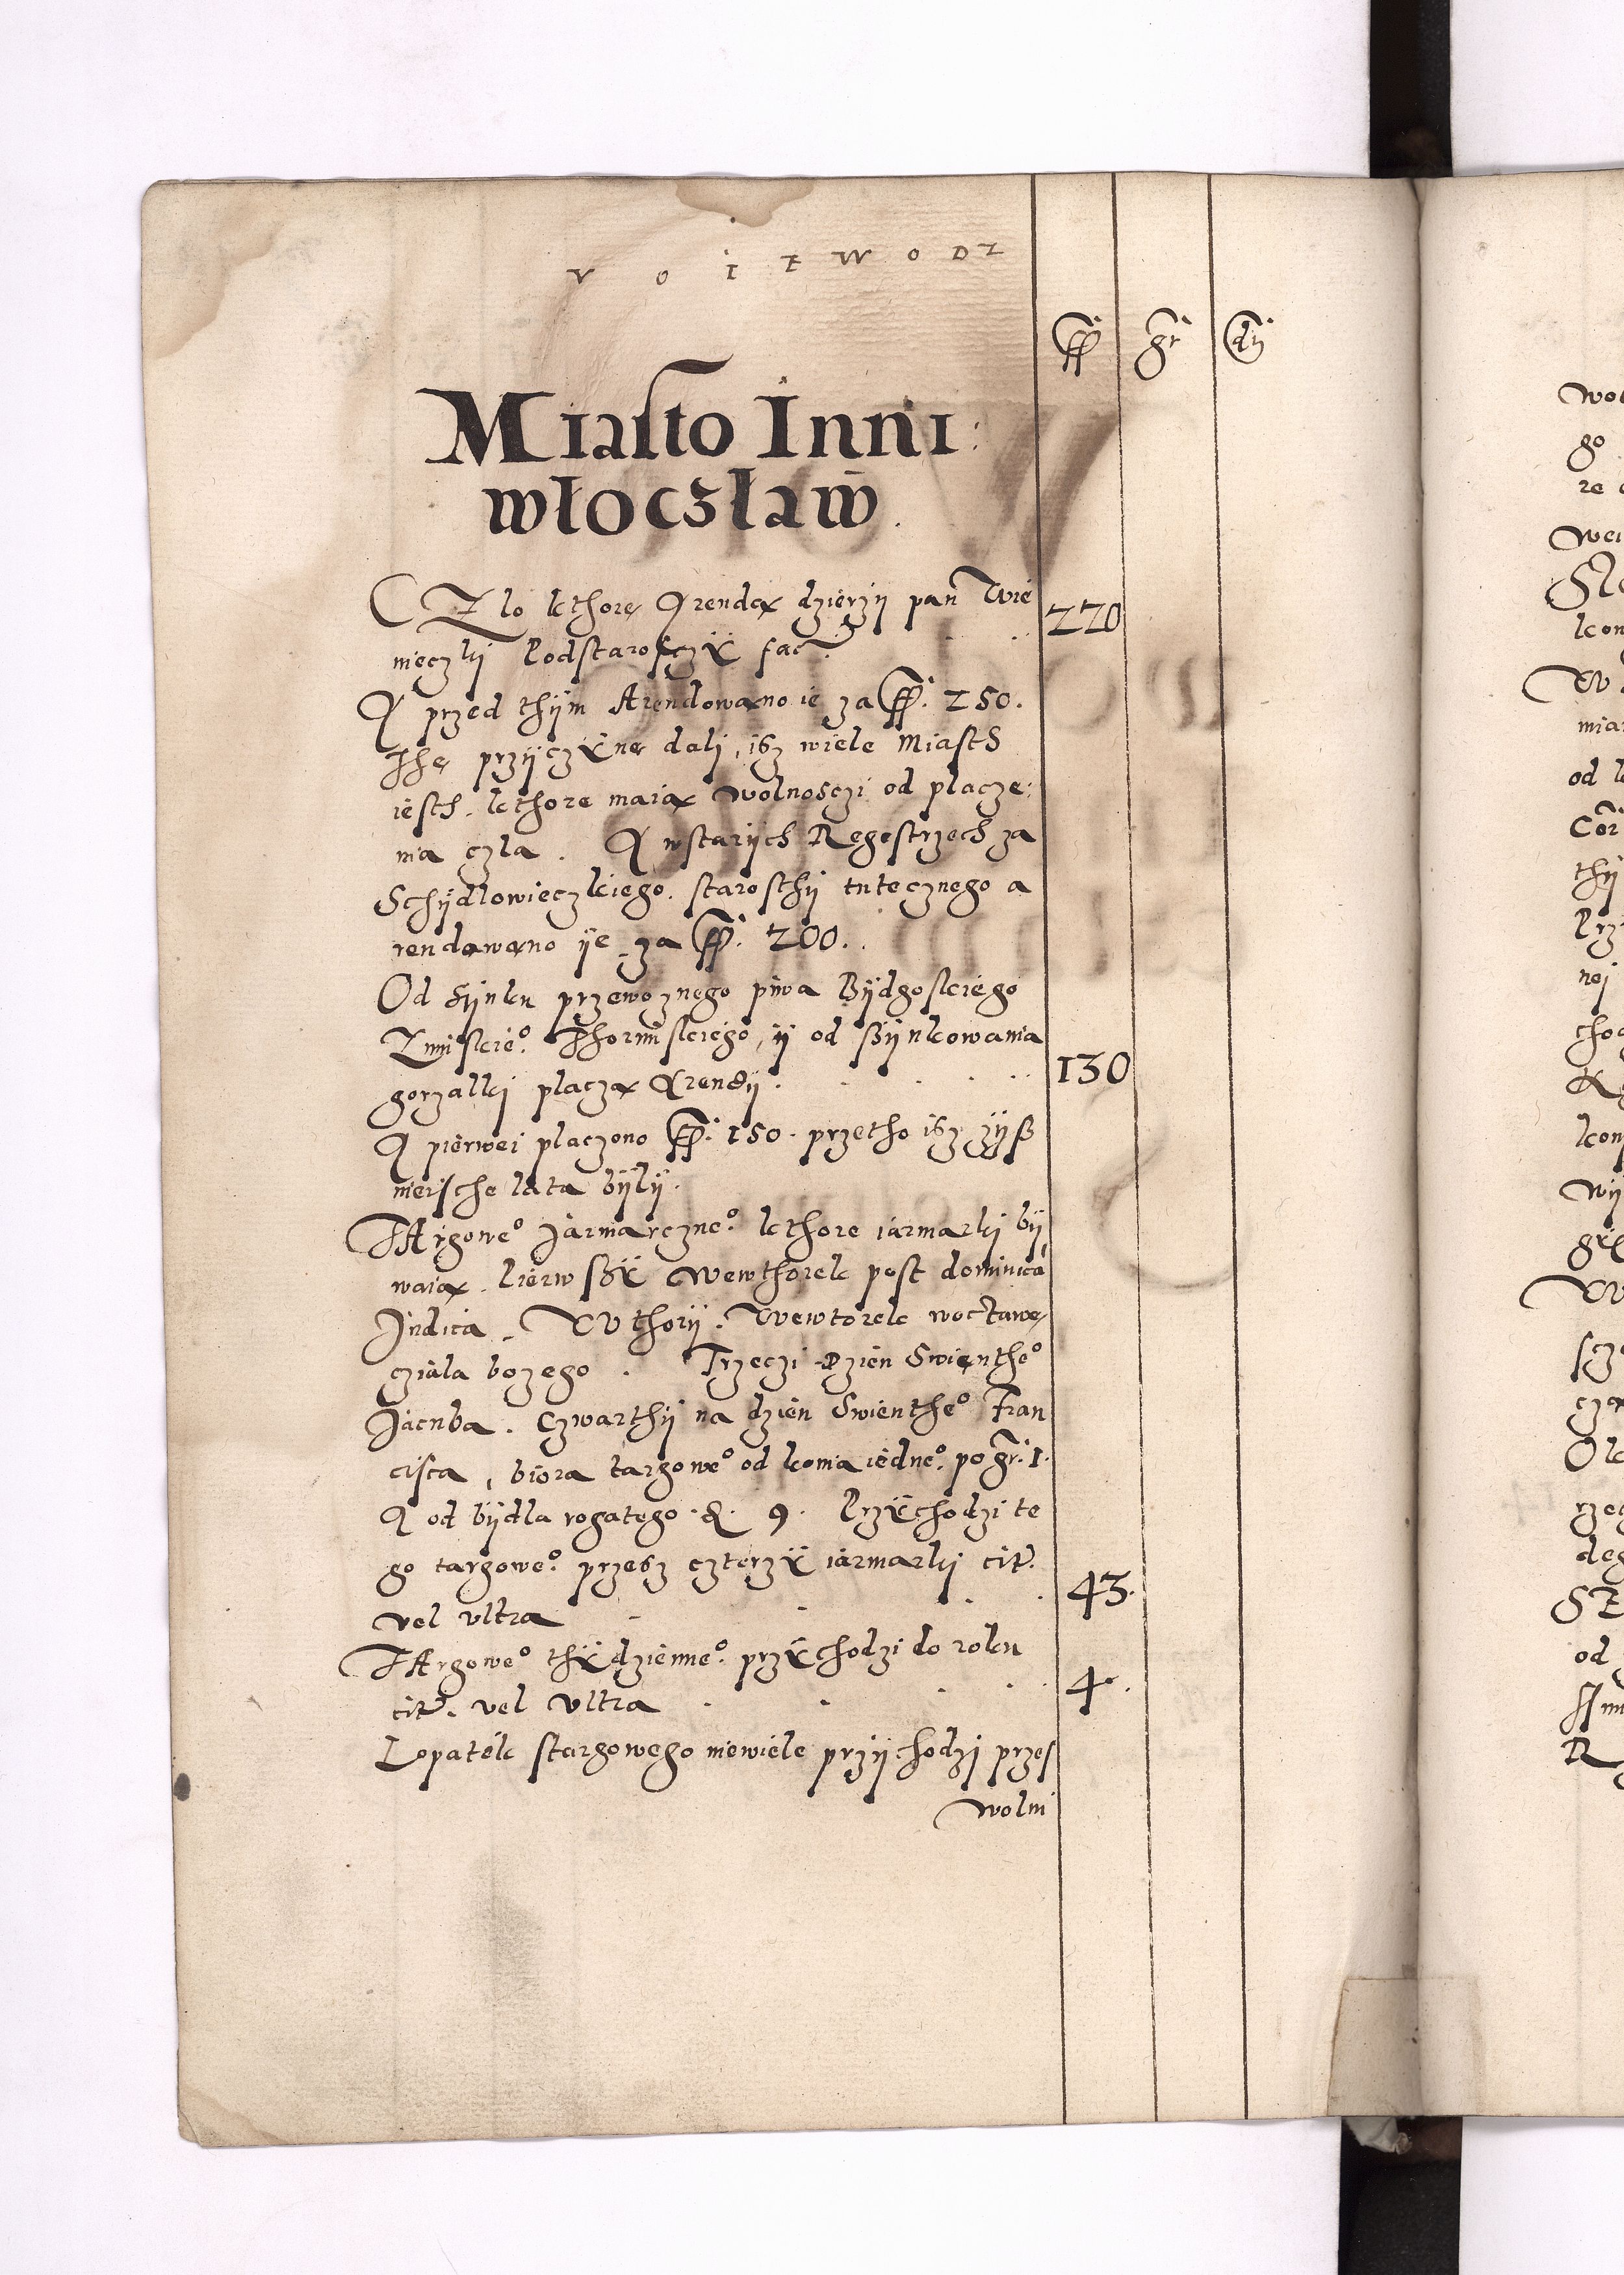 V O I E W O D Z
ff. gr. dñ
Miasto Inni:
włoczław.
CZlo kthore Arendą dzierzÿ pan Twie 220
nieczki Podstarosczÿ fac.
A przed thÿm Arendowano ie za ff. 250.
The przÿczÿne dali, isz wiele Miasth
iesth. kthore maią wolnosczi od placze:
nia czla. A wstarÿch Regestrzech za
Schÿdlowieczkiego. starosthÿ tutecznego a
rendowano ÿe za ff. 200.
Od Sÿnku przewoznego piwa Bÿdgoskiego
Zninskie°. Thorunskiego, ÿ od szÿnkowania
gorzalki placzą Arendÿ. 130
A pierwei placzono ff. 150. przetho isz zÿß
niersche lata bÿlÿ.
TArgowe° Jarmarczne°. kthore iarmarki bÿ
waią. Pierwszÿ Wewthorek post dominicā
Judica. Wthorÿ. Wewtorek woctawę
cziala bozego. Trzeczi Dzien Swienthe°
Jacuba. Czwarthÿ na dzien Swienthe° Fran
cisca, biora targowe° od konia iedne°. po gr. 1.
A od bÿdla rogatego .d. 9. Przÿchodzi te
go targowe°. przesz czterzÿ iarmarki citr.
vel ultra 43.
TArgowe° thÿdzienne°. przÿchodzi do roku
citr. vel Ultra 4.
Lopatek stargowego niewiele przÿchodzi przes
wolni